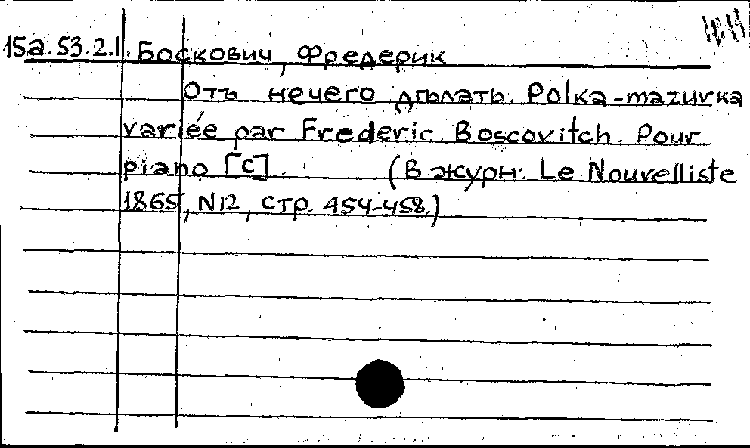 15а.53.2.1. Боскович, Фредерик
Отъ нечего дѣлать. Polka-mazurka
variée par Frederic Boscovitch. Pour
piano [C] (В журн. Le Nouvelliste
1865, N12, стр. 454-458.)